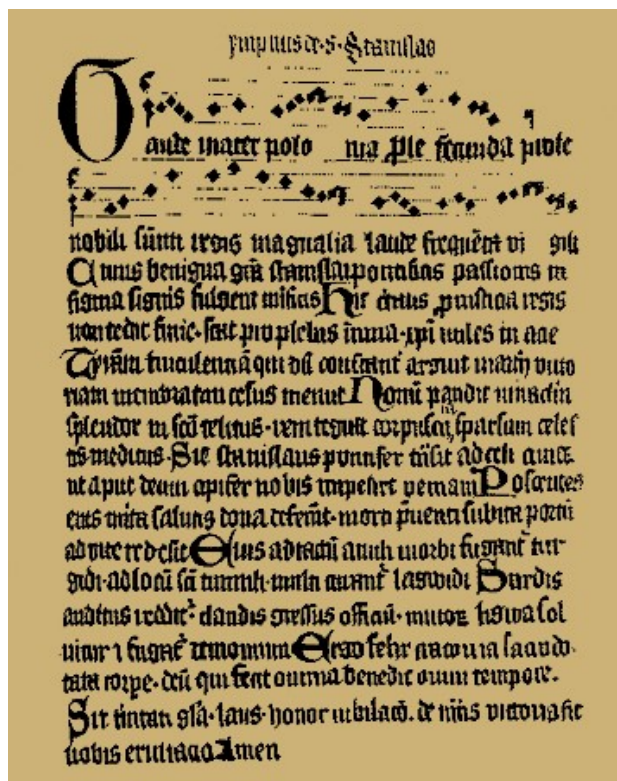 ympnus de·s·Stanislao
Gaude mater polo nia ple fecunda prole
nobili sūmi regis magnalia laude frequēta vi gili
Cuius benigna grā stanislai pontificis passionis in
signia signis fulgent mirificis Hic certās p iusticia regis
non cedit furie· stat pro plebis iniuria· xpi miles in acie
Tyrāni truculenciā qui dū constant̄ arguit victo
riam membratim cesus meruit Nouū pandit miraclm
splendor in scō celitus· sparsum celes
tis medicus· Sic stanislaus pontifex trāsit ad celi
ut aput deum opifex nobis impetret veniam Poscentes
eius salutis dona· morte p̄uenti subita
ad vite redeūt Eius ad tactū anuli morbi fugant̄ tur
gidi· ad locū scī tumuli· multi curant̄ langwidi Surdis
auditus reddit̄· claudis gressus officiū· mutor lingwa sol
uitur i fugat̄ demonium Ergo felix cracouia sacro do
tata corpe· deū qui fecit omnia benedic omni tempore·
Sit gla· laus· honor iubilacō· de victoria sit
nobis exultacio Amen